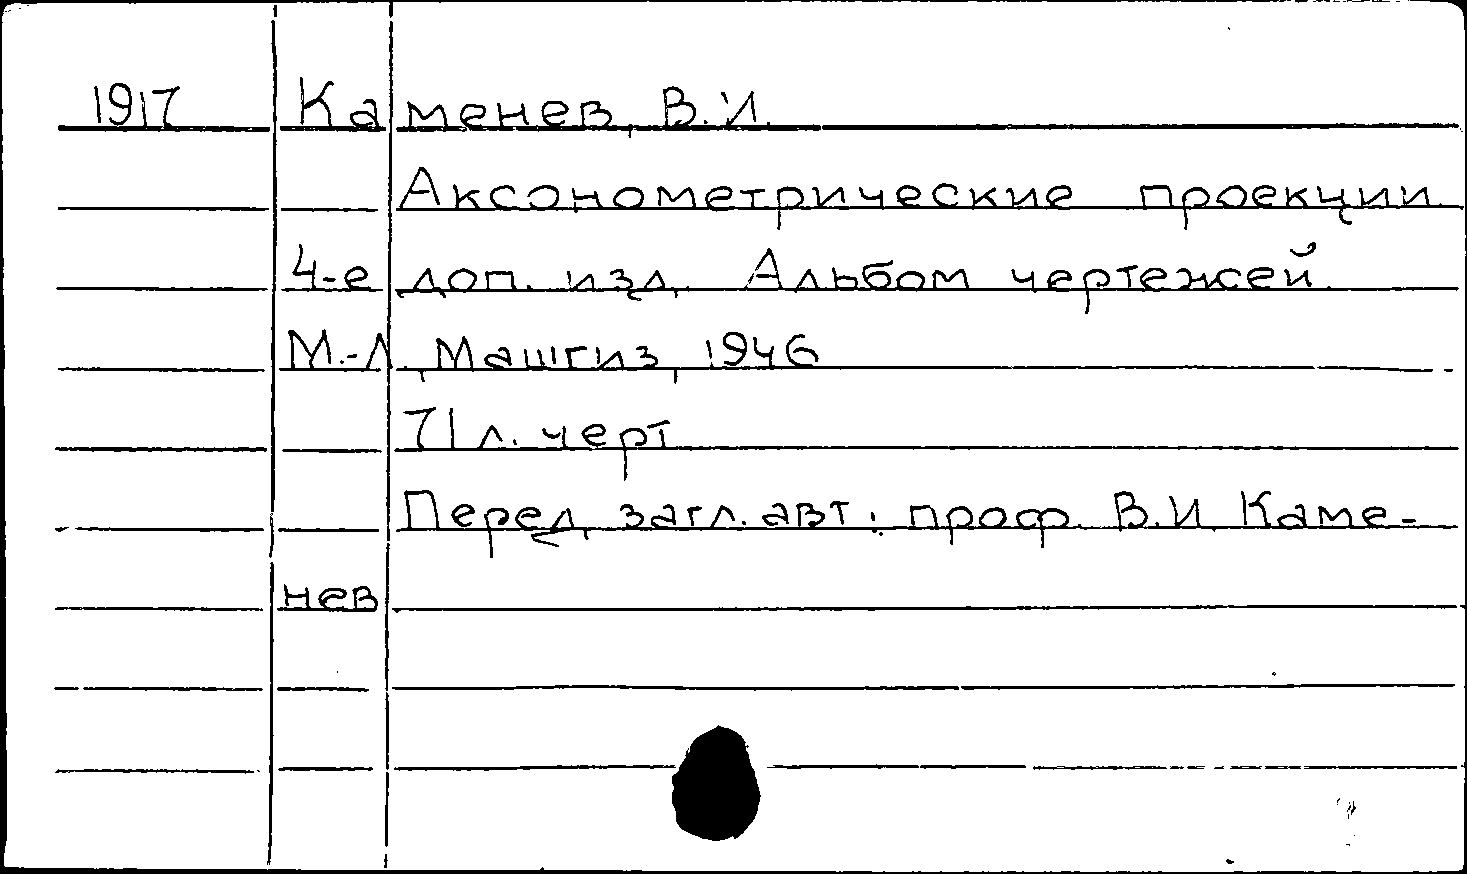 1917 Каменев, В.И.
Аксонометрические проекции.
4-е доп. изд. Альбом чертежей.
М.-Л., Машгиз, 1946
71 л. черт
Перед загл. авт.: проф. В.И. Каме-
нев